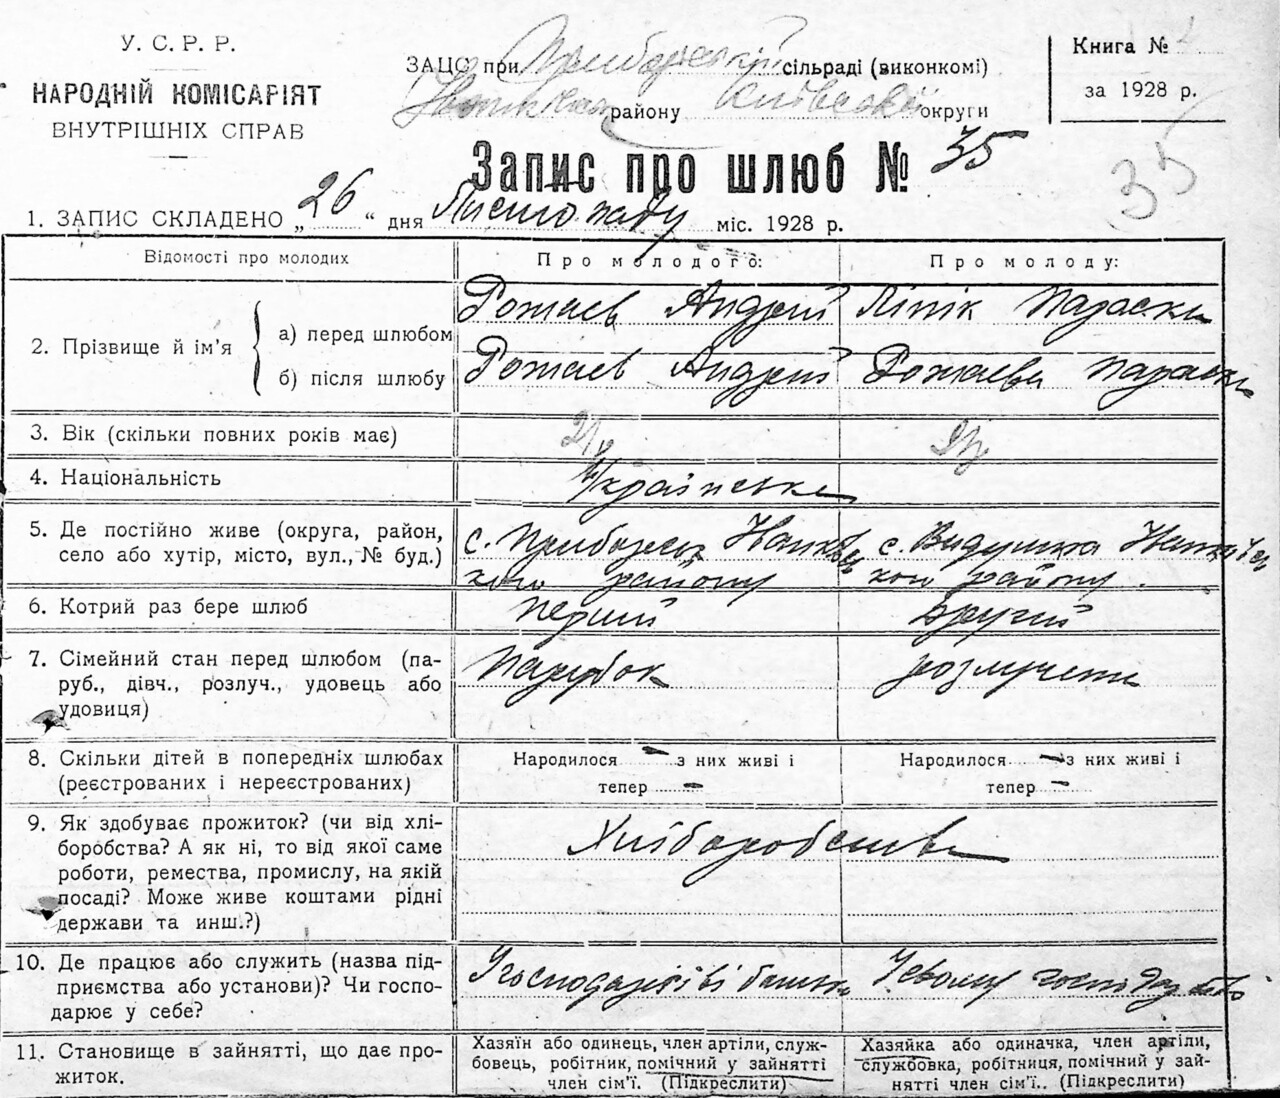 У. С. Р. Р.
НАРОДНІЙ КОМІСАРІЯТ
ВНУТРІШНІХ СПРАВ
ЗАЦС при Прибірській сільраді (виконкомі)
району Київської округи
Книга №
за 1928 р.
Запис про шлюб № 35
35
1. ЗАПИС СКЛАДЕНО „26“ дня Листопаду міс. 1928 р.
Відомості про молодих
Про молодого:
Про молоду:
2. Прізвище й ім’я
а) перед шлюбом
Рожаєв Андрій
Ліпік Параска
б) після шлюбу
Рожаєв Андрій
Рожаєва Параска
3. Вік (скільки повних років має)
4. Національність
Українська
5. Де постійно живе (округа, район,
село або хутір, місто, вул., № буд.)
с. Прибірськ
кого району
с.
кого району.
6. Котрий раз бере шлюб
перший
другий
7. Сімейний стан перед шлюбом (па-
руб., дівч., розлуч., удовець або
удовиця)
Парубок
розлучена
8. Скільки дітей в попередніх шлюбах
(реєстрованих і нереєстрованих)
Народилося – з них живі і
тепер –
Народилося – з них живі і
тепер –
9. Як здобуває прожиток? (чи від хлі-
боробства? А як ні, то від якої саме
роботи, ремества, промислу, на якій
посаді? Може живе коштами рідні
держави та инш.?)
Хліборобства
10. Де працює або служить (назва під-
приємства або установи)? Чи госпо-
дарює у себе?
У господарстві батька
У своєму господарстві
11. Становище в зайнятті, що дає про-
житок.
Хазяїн або одинець, член артіли, служ-
бовець, робітник, помічний у зайнятті
член сім’ї. (Підкреслити)
Хазяйка або одиначка, член артіли,
службовка, робітниця, помічний у зай-
нятті член сім’ї.. (Підкреслити)